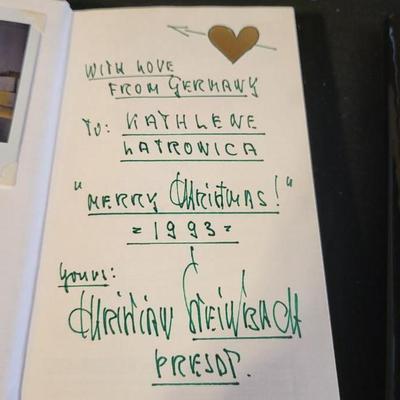 WITH LOVE
FROM GERMANY
TO: KATHLENE
LATRONICA
"MERRY Christmas!"
= 1993 =
Yours:
CHRISTIAN STEINBACH
PRESDT.